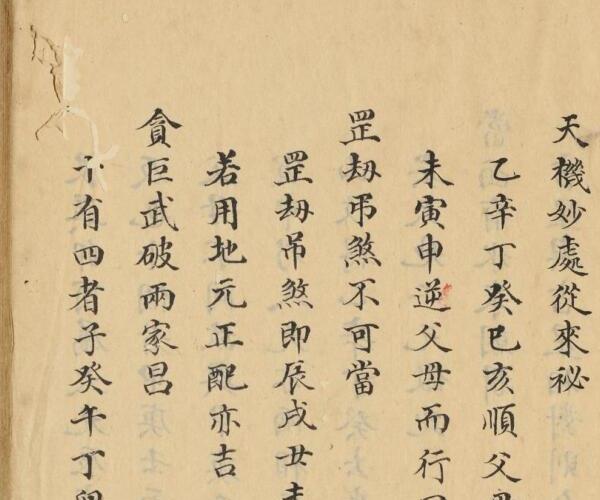 天機妙處從來祕
乙辛丁癸巳亥順父
未寅申逆父母而行
罡刼吊煞不可當
罡刼吊煞即辰戌丑
若用地元正配亦吉
貪巨武破兩家昌
有四者子癸午丁